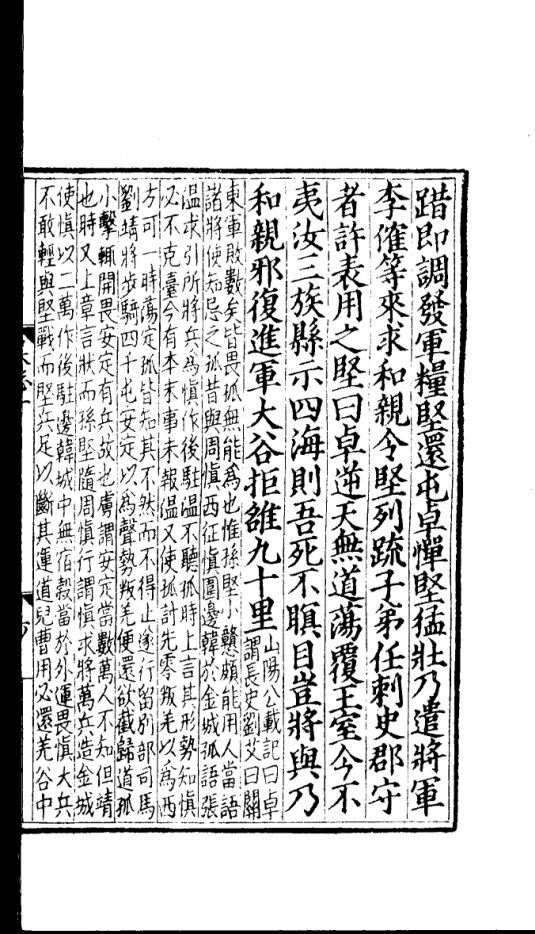 踖即調發軍糧堅還屯卓憚堅猛壯乃遣將軍
李傕等來求和親令堅列疏子弟任刺史郡守
者許表用之堅曰卓逆天無道蕩覆王室今不
夷汝三族縣示四海則吾死不瞑目豈將與乃
和親邪復進軍大谷拒雒九十里
山陽公載記曰卓
謂長史劉艾曰關
東軍敗數矣皆畏孤無能為也惟孫堅小戇頗能用人當語
諸將使知忌之孤昔與周慎西征慎圍邊韓於金城孤語張
溫求引所將兵為慎作後駐溫不聽孤時上言其形勢知慎
必不克臺今有本末事未報溫又使孤討先零叛羌以為西
方可一時蕩定孤皆知其不然而不得止遂行留別部司馬
劉靖將步騎四千屯安定以為聲勢叛羌便還欲截歸道孤
小擊輒開畏安定有兵故也虜謂安定當數萬人不知但靖
也時又上章言狀而孫堅隨周慎行謂慎求將萬兵造金城
使慎以二萬作後駐邊韓城中無宿穀當於外運畏慎大兵
不敢輕與堅戰而堅兵足以斷其運道兒曹用必還羌谷中